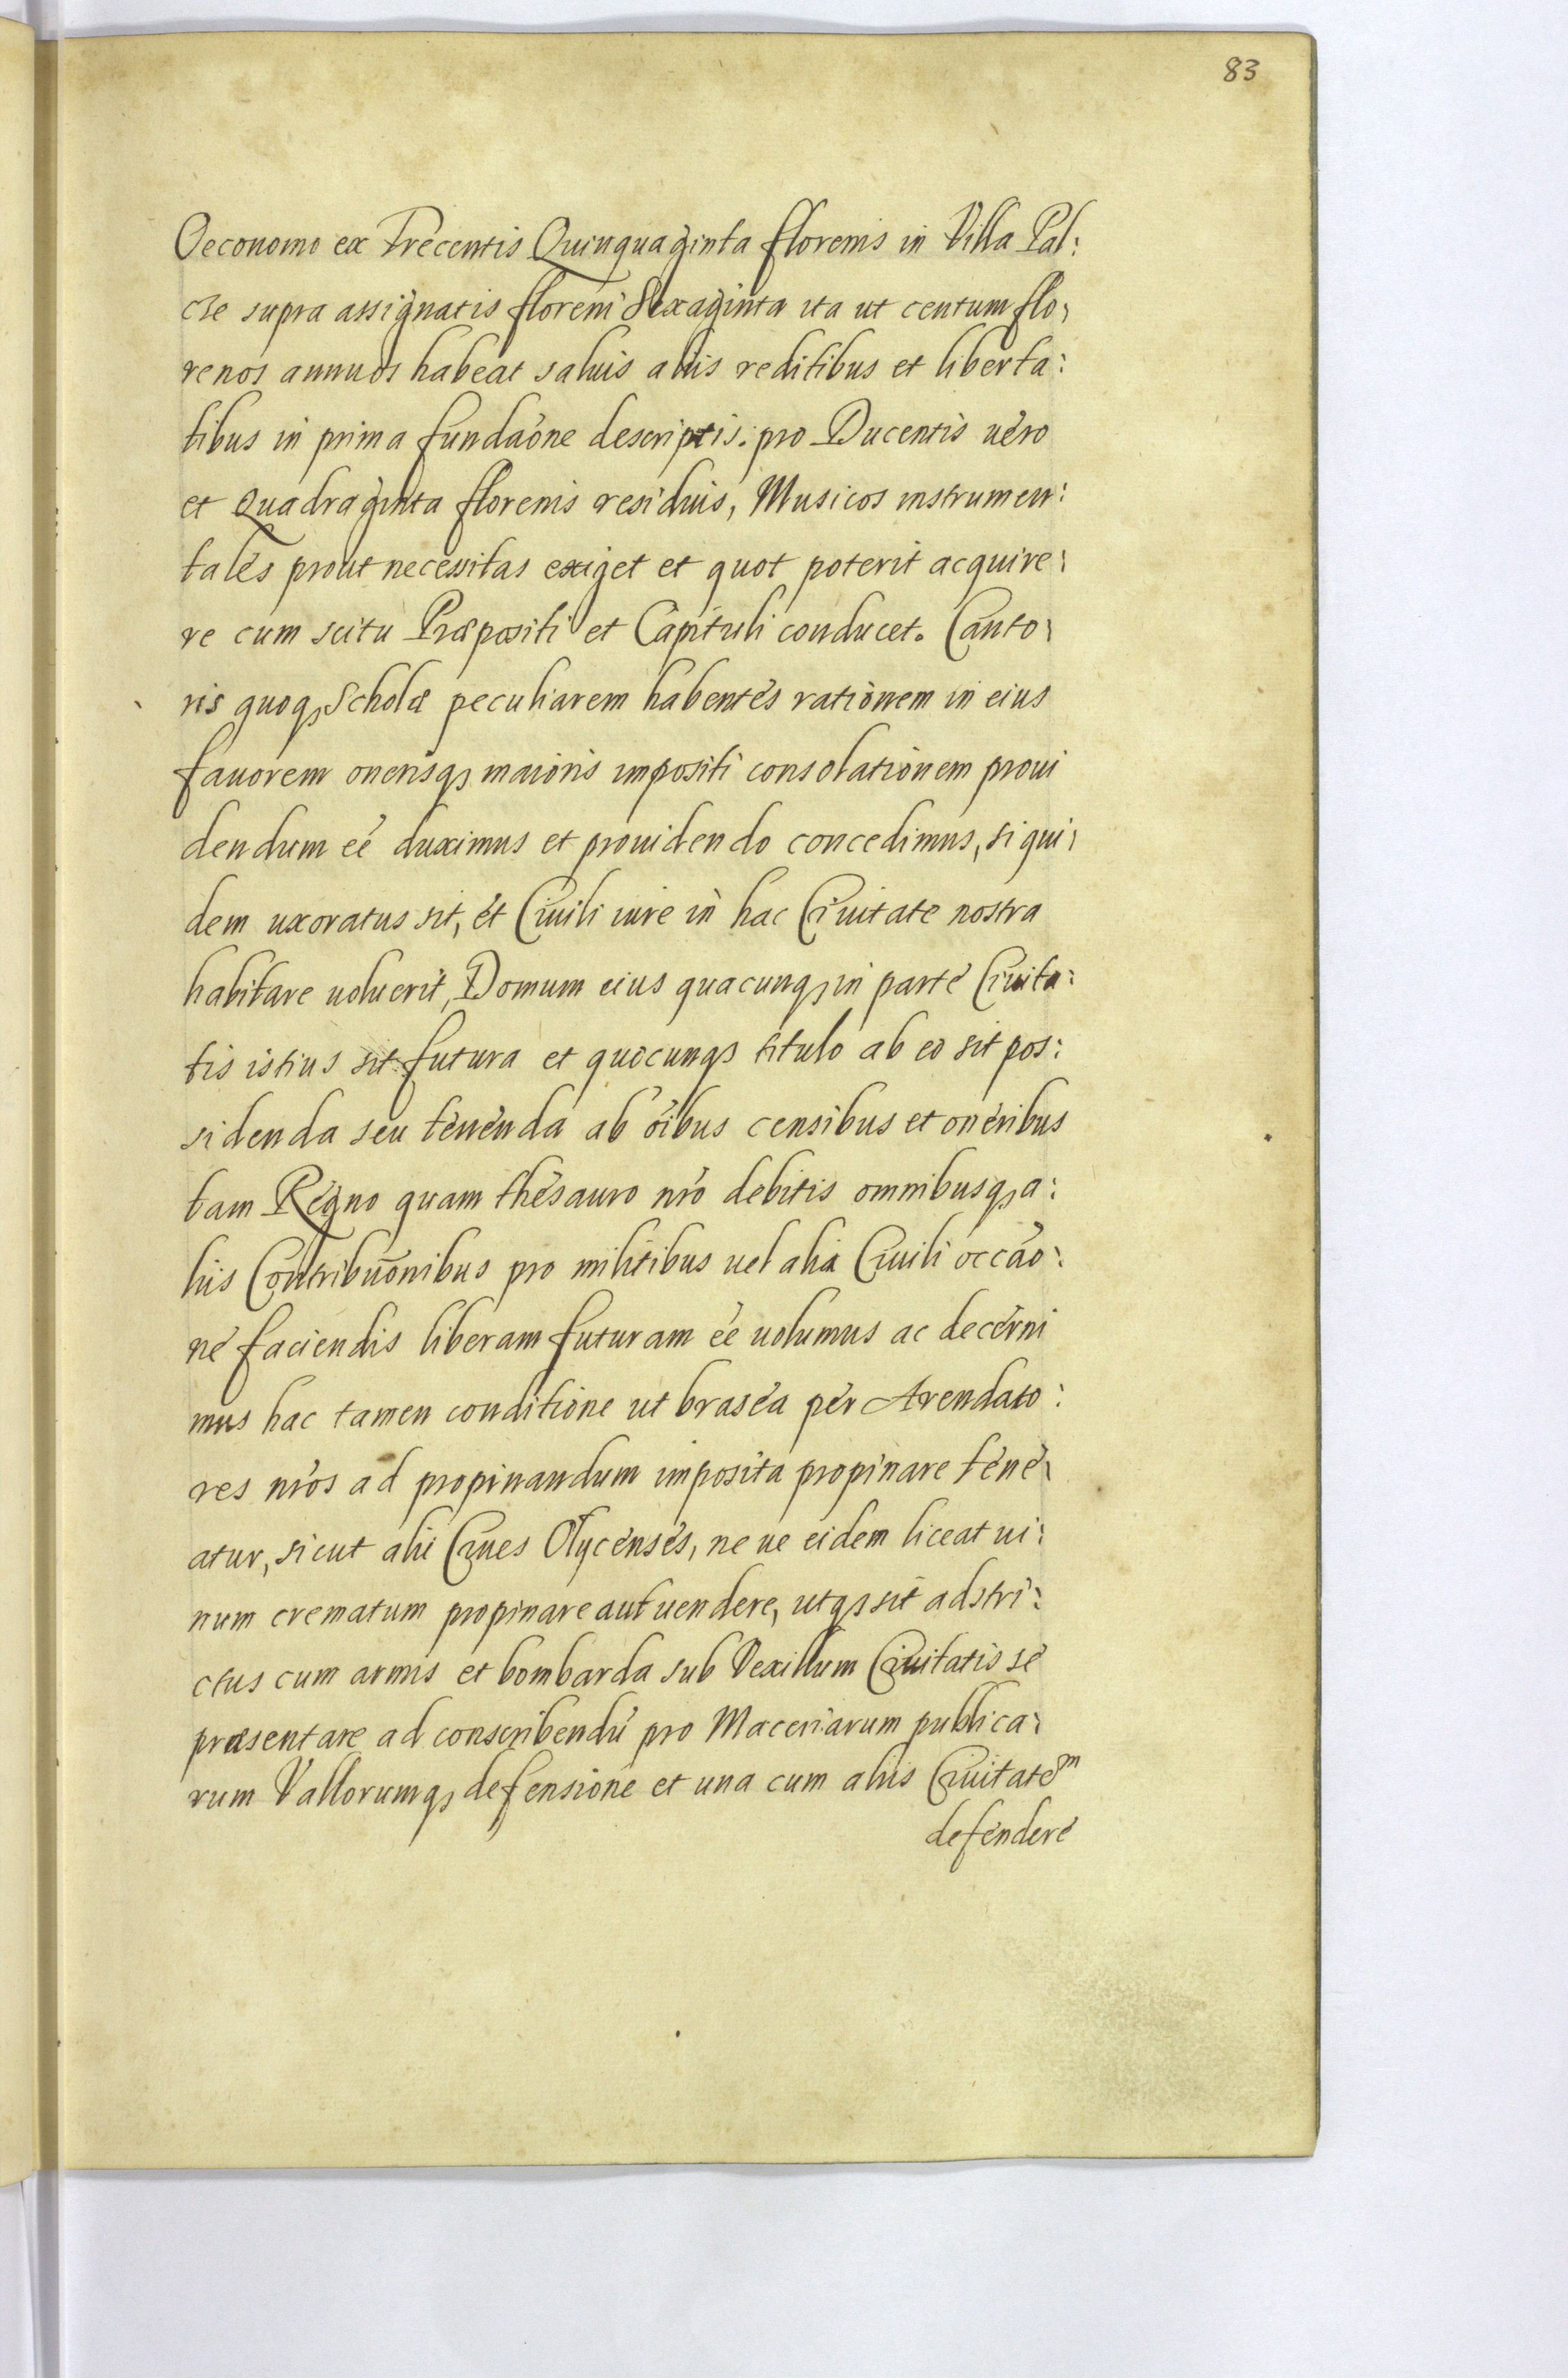 83
Oeconomo ex Trecentis Quinquaginta florenis in Villa Pal:
cze supra assignatis floreni Sexaginta ita ut centum flo:
renos annuos habeat saluis aliis reditibus et liberta:
tibus in prima fundaóne descriptis. pro Ducentis uero
et Quadraginta florenis residuis, Musicos instrumen:
tales prout necessitas exiget et quot poterit acquire:
re cum scitu Præpositi et Capituli conducet. Canto:
ris quoqꝫ Scholæ peculiarem habentes rationem in eius
fauorem onerisqꝫ maioris impositi consolationem proui
dendum eé duximus et prouidendo concedimus, si qui:
dem uxoratus sit, et Ciuili iure in hac Ciuitate nostra
habitare uoluerit, Domum eius quacunqꝫ in parte Ciuita:
tis istius sit futura et quocunqꝫ titulo ab eo sit pos:
sidenda seu tenenda ab óibus censibus et oneribus
tam Regno quam thesauro nró debitis omnibusqꝫ a:
liis Contribuõnibus pro militibus uel alia Ciuili occáo:
ne faciendis liberam futuram eé uolumus ac decerni
mus hac tamen conditione ut brasea per Arendato:
res nrós ad propinandum imposita propinare tene:
atur, sicut alii Ciues Olycenses, ne ue eidem liceat ui:
num crematum propinare aut uendere, utqꝫ sit adstri:
ctus cum armis et bombarda sub Vexillum Ciuitatis se
præsentare ad conscribendú pro Maceriarum publica:
rum Vallorumqꝫ defensione et una cum aliis Ciuitatem
defendere